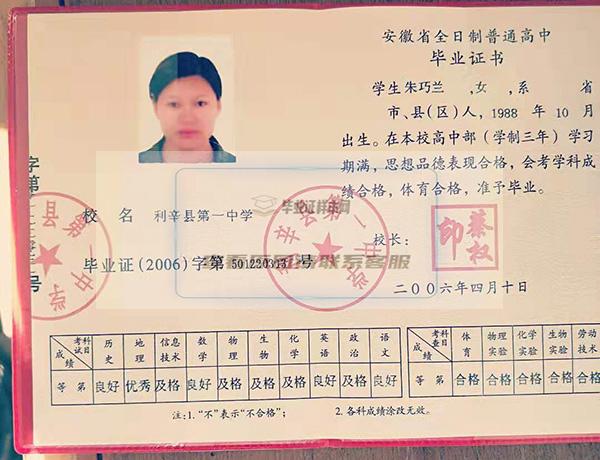 安徽省全日制普通高中
毕业证书
学生朱巧兰 ,女 ,系 省
市、县(区)人, 1988 年 10 月
出生。在本校高中部(学制三年)学习
期满,思想品德表现合格,会考学科成
绩合格,体育合格,准予毕业。
校 名 利辛县第一中学
校长:
秦权印
毕业证(2006)字第 号
二〇〇六年四月十日
字第
号
毕业证样网
联系客服
考试科目 历史 地理 信息技术 数学 物理 生物 化学 英语 政治 语文
成绩
等 第 良好 优秀 及格 良好 及格 及格 及格 良好 及格 良好
考查科目 体育 物理实验 化学实验 生物实验 劳动技术
成绩
等 第 合格 合格 合格 合格 合格
注:1.“不”表示“不合格”; 2.各科成绩涂改无效。